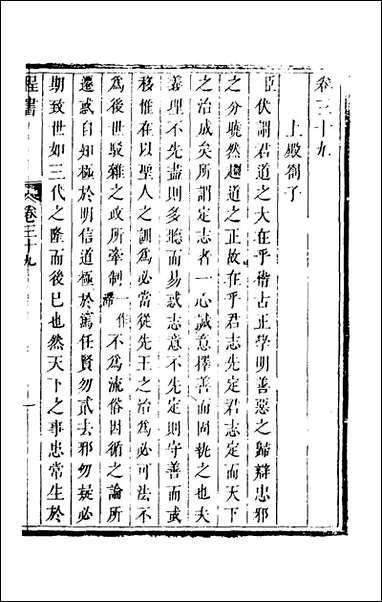 卷三十九
上殿劄子
臣伏謂君道之大在乎稽古正學明善惡之歸辯忠邪
之分曉然趨道之正故在乎君志先定君志定而天下
之治成矣所謂定志者一心誠意擇善而固執之也夫
義理不先盡則多聽而易惑志意不先定則守善而或
移惟在以聖人之訓為必當從先王之治為必可法不
為後世駁雜之政所牽制一作滯不為流俗因循之論所
遷惑自知極於明信道極於篤任賢勿貳去邪勿疑必
期致世如三代之隆而後已也然天下之事患常生於
程書
卷三十九
一